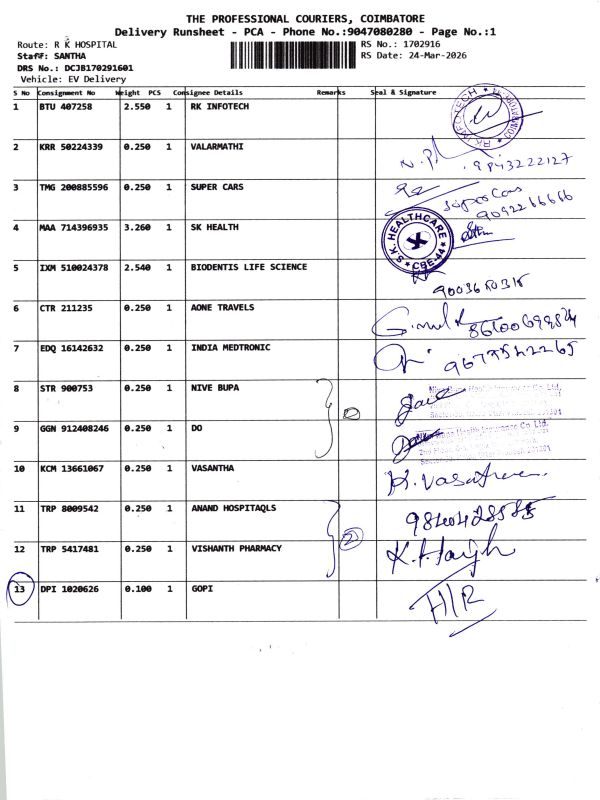 THE PROFESSIONAL COURIERS, COIMBATORE
Delivery Runsheet - PCA - Phone No.:9047080280 - Page No.:1
Route: R K HOSPITAL
RS No.: 1702916
Staff: SANTHA
RS Date: 24-Mar-2026
DRS No.: DCJB170291601
Vehicle: EV Delivery
S No Consignment No Weight PCS Consignee Details Remarks Seal & Signature
1 BTU 407258 2.550 1 RK INFOTECH
RK INFOTECH * COIMBATORE *
2 KRR 50224339 0.250 1 VALARMATHI
9843222127
3 TMG 200885596 0.250 1 SUPER CARS
Super Cars
9092266666
4 MAA 714396935 3.260 1 SK HEALTH
S.K. HEALTHCARE * CBE-44 *
5 IXM 510024378 2.540 1 BIODENTIS LIFE SCIENCE
6 CTR 211235 0.250 1 AONE TRAVELS
7 EDQ 16142632 0.250 1 INDIA MEDTRONIC
8 STR 900753 0.250 1 NIVE BUPA
Niva Bupa Health Insurance Co. Ltd.
9 GGN 912408246 0.250 1 DO
Niva Bupa Health Insurance Co Ltd.
10 KCM 13661067 0.250 1 VASANTHA
11 TRP 8009542 0.250 1 ANAND HOSPITAQLS
2
12 TRP 5417481 0.250 1 VISHANTH PHARMACY
13 DPI 1020626 0.100 1 GOPI
H/R